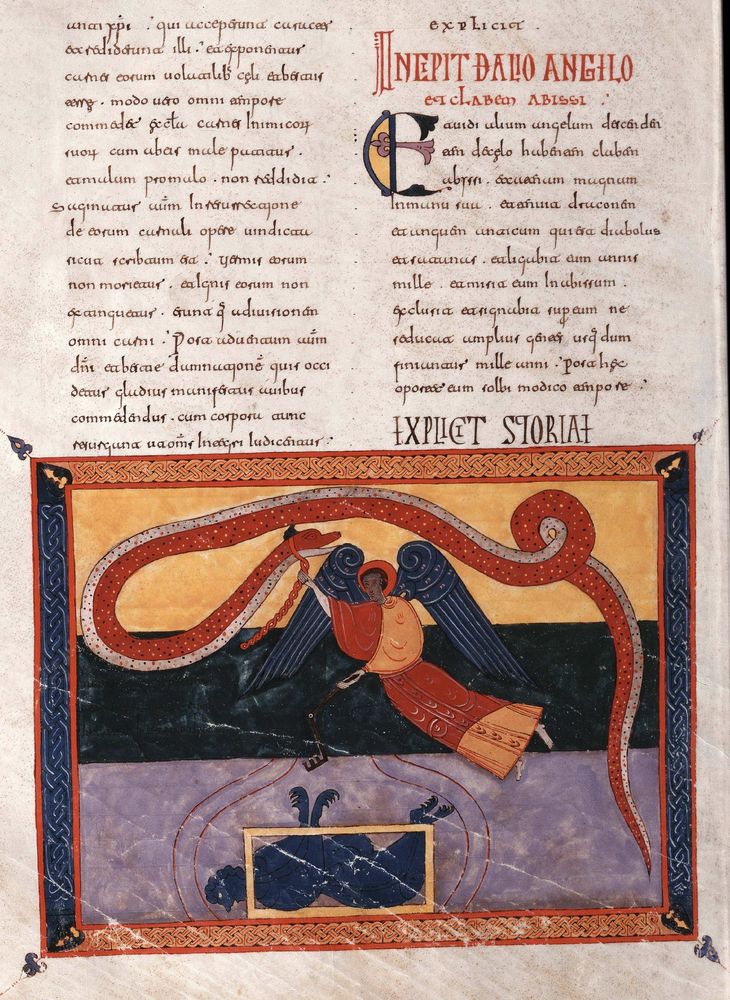 xp̄i · qui acceperunt carnes
et reddiderunt illi · et exponentur
carnes eorum volatilib; celi et
modo vero omni tempore
commedet carnes inimicor
suor cum male
et malum pro malo · non reddidit ·
Saginatur aūm in resurrectione
de eorum carnali opere vindicata
sicut scribtum est · Vermis eorum
non morietur · et ignis eorum non
extinguetur · erunt q̄ ad visionem
omni carni · Post adventum aūm
dn̄i et bestie damnationē quis occi
detur gladius manifestatur avibus
commedendus · cum corpora tunc
resurgunt ut om̄s integri iudicentur ·
explicit ·
INCPIT D ALIO ANGELO
et clabem abissi ·
Et vidi alium angelum descenden
tem de celo habentem clabem
abissi · et catenam magnam
in manu sua · et tenuit draconem
et anguem anticum qui est diabolus
et satanas · et ligabit eum annis
mille · et misit eum in abissum ·
exclusit et signabit sup eum ne
seducat amplius gentes usq; dum
finiantur mille anni · Post hec
oportet eum solbi modico tempore ·
EXPLICIT STORIA